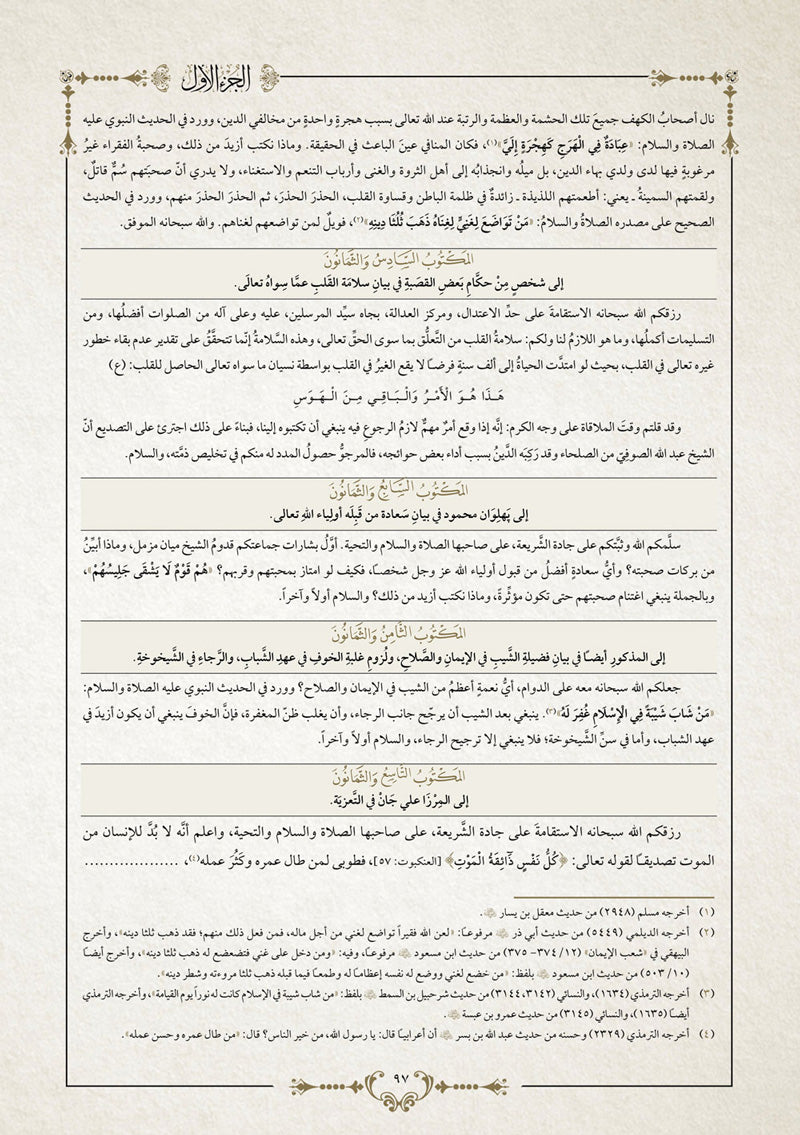 الجزء الأول
نال أصحابُ الكهف جميعَ تلك الحشمة والعظمة والرتبة عند الله تعالى بسبب هجرةٍ واحدةٍ من مخالفي الدين، وورد في الحديث النبوي عليه
الصلاة والسلام: «عِبَادَةٌ فِي الْهَرَجِ كَهِجْرَةٍ إِلَيَّ»(١)، فكان المنافي عينَ الباعث في الحقيقة. وماذا نكتب أزيدَ من ذلك، وصحبةُ الفقراء غيرُ
مرغوبةٍ فيها لدى ولدي بهاء الدين، بل ميلُه وانجذابُه إلى أهل الثروة والغنى وأرباب التنعم والاستغناء، ولا يدري أنّ صحبتَهم سُمٌّ قاتلٌ،
ولقمتهم السمينةُ ـ يعني: أطعمتهم اللذيذة ـ زائدةٌ في ظلمة الباطن وقساوة القلب، الحذرَ الحذرَ، ثم الحذرَ الحذرَ منهم، وورد في الحديث
الصحيح على مصدره الصلاةُ والسلامُ: «مَنْ تَوَاضَعَ لِغَنِيٍّ لِغِنَاهُ ذَهَبَ ثُلُثَا دِينِهِ»(٢)، فويلٌ لمن تواضعهم لغناهم. والله سبحانه الموفق.
المَكْتُوبُ السَّادِسُ وَالثَّمَانُونَ
إلى شخصٍ مِنْ حكَّامِ بَعضِ القصَبةِ في بيانِ سلامَة القَلبِ عمَّا سِواهُ تعالَى.
رزقكم الله سبحانه الاستقامةَ على حدِّ الاعتدال، ومركز العدالة، بجاه سيِّد المرسلين، عليه وعلى آله من الصلوات أفضلُها، ومن
التسليمات أكملُها، وما هو اللازمُ لنا ولكم: سلامةُ القلب من التَّعلُّق بما سوى الحقِّ تعالى، وهذه السَّلامةُ إنّما تتحقَّقُ على تقدير عدم بقاء خطور
غيره تعالى في القلب، بحيث لو امتدَّت الحياةُ إلى ألف سنةٍ فرضًا لا يقع الغيرُ في القلب بواسطة نسيان ما سواه تعالى الحاصل للقلب: (ع)
هَـذَا هُـوَ الْأَمْـرُ وَالْبَـاقِـي مِـنَ الْـهَـوَسِ
وقد قلتم وقتَ الملاقاة على وجه الكرم: إنَّه إذا وقع أمرٌ مهمٌّ لازمُ الرجوع فيه ينبغي أن تكتبوه إلينا، فبناءً على ذلك اجترئ على التصديع أنّ
الشيخ عبد الله الصوفيّ من الصلحاء وقد رَكِبَه الدَّينُ بسبب أداء بعض حوائجه، فالمرجوُّ حصولُ المدد له منكم في تخليص ذمَّته، والسلام.
المَكْتُوبُ السَّابِعُ وَالثَّمَانُونَ
إلى پَهلِوَان محمود في بيانِ سَعادة من قَبِلَه أولِياء اللهِ تعالى.
سلَّمكم الله وثبَّتكم على جادة الشَّريعة، على صاحبها الصلاة والسلام والتحية. أوَّلُ بشارات جماعتكم قدومُ الشيخ ميان مزمل، وماذا أبيِّنُ
من بركات صحبته؟ وأيُّ سعادةٍ أفضلُ من قبول أولياء الله عز وجل شخصًا، فكيف لو امتاز بمحبتهم وقربهم؟ «هُمْ قَوْمٌ لَا يَشْقَى جَلِيسُهُمْ»،
وبالجملة ينبغي اغتنام صحبتهم حتى تكون مؤثِّرةً، وماذا نكتب أزيد من ذلك؟ والسلام أولاً وآخراً.
المَكْتُوبُ الثَّامِنُ وَالثَّمَانُونَ
إلى المذكورِ أيضًا في بيانِ فضيلةِ الشَّيبِ في الإيمانِ والصَّلاحِ، ولُزومِ غلبةِ الخوفِ في عهدِ الشَّبابِ، والرَّجاءِ في الشَّيخوخةِ.
جعلكم الله سبحانه معه على الدوام، أيُّ نعمةٍ أعظمُ من الشيب في الإيمان والصلاح؟ وورد في الحديث النبوي عليه الصلاة والسلام:
«مَنْ شَابَ شَيْبَةً فِي الْإِسْلَامِ غُفِرَ لَهُ»(٣). ينبغي بعد الشيب أن يرجّح جانب الرجاء، وأن يغلب ظنّ المغفرة، فإنَّ الخوفَ ينبغي أن يكون أزيدَ في
عهد الشباب، وأما في سنِّ الشَّيخوخة؛ فلا ينبغي إلا ترجيح الرجاء، والسلام أولاً وآخراً.
المَكْتُوبُ التَّاسِعُ وَالثَّمَانُونَ
إلى المِرْزَا علي جَانْ في التَّعزيَة.
رزقكم الله سبحانه الاستقامةَ على جادة الشَّريعة، على صاحبها الصلاة والسلام والتحية، واعلم أنَّه لا بُدَّ للإنسان من
الموت تصديقًا لقوله تعالى: ﴿كُلُّ نَفْسٍ ذَآئِقَةُ الْمَوْتِ﴾ [العنكبوت: ٥٧]، فطوبى لمن طال عمره وكَثُرَ عمله(٤)، ..................
(١) أخرجه مسلم (٢٩٤٨) من حديث معقل بن يسار ﵁.
(٢) أخرجه الديلمي (٥٤٤٩) من حديث أبي ذر ﵁ مرفوعًا: «لعن الله فقيراً تواضع لغني من أجل ماله، فمن فعل ذلك منهم؛ فقد ذهب ثلثا دينه»، وأخرج
البيهقي في «شعب الإيمان» (١٢/ ٣٧٤- ٣٧٥) من حديث ابن مسعود ﵁ مرفوعًا، وفيه: «ومن دخل على غني فتضعضع له ذهب ثلثا دينه»، وأخرج أيضًا
(١٠/ ٥٠٣) من حديث ابن مسعود ﵁ بلفظ: «من خضع لغني ووضع له نفسه إعظامًا له وطمعًا فيما قبله ذهب ثلثا مروءته وشطر دينه».
(٣) أخرجه الترمذي (١٦٣٤)، والنسائي (٣١٤٢، ٣١٤٤) من حديث شرحبيل بن السمط ﵁ بلفظ: «من شاب شيبة في الإسلام كانت له نوراً يوم القيامة»، وأخرجه الترمذي
أيضًا (١٦٣٥)، والنسائي (٣١٤٥) من حديث عمرو بن عبسة ﵁.
(٤) أخرجه الترمذي (٢٣٢٩) وحسنه من حديث عبد الله بن بسر ﵁ أن أعرابيا قال: يا رسول الله، من خير الناس؟ قال: «من طال عمره وحسن عمله».
٩٧